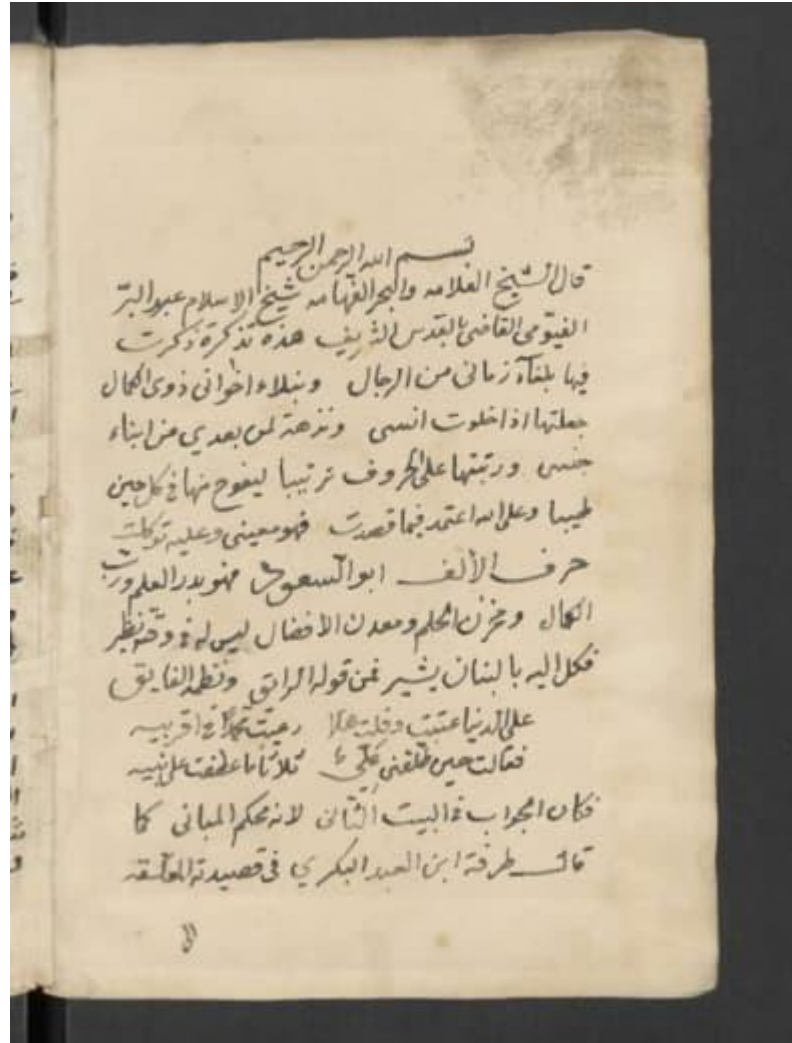 بسم الله الرحمن الرحيم
قال الشيخ العلامه والبحر الفهامه شيخ الاسلام عبد البر
الفيومى القاضى بالقدس الشريف هذه تذكرة ذكرت
فيها بلغآء زمانى من الرجال ونبلاء اخوانى ذوى الكمال
جعلتها اذا خلوت انسى ونزهة لمن بعدي من ابناء
جنسى ورتبتها على الحروف ترتيبا ليفوح منها فى كل حين
طيبا وعلى الله اعتمد فيما قصدت فهو معينى وعليه توكلت
حرف الألف ابو السعود فهو بدر العلم ورب
الكمال ومخزن الحلم ومعدن الافضال ليس له فى وقته نظير
فكل اليه بالبنان يشير فمن قوله الرائق ونظمه الفايق
على الدنيا عتبت وقلت هلا رعيت محمدا فى اقربيه
فقالت حين طلقنى على ثلاثا ما عطفت على بنيه
فكان الجواب فى البيت الثانى لانه محكم المبانى كما
قال طرفة ابن العبد البكري فى قصيدته